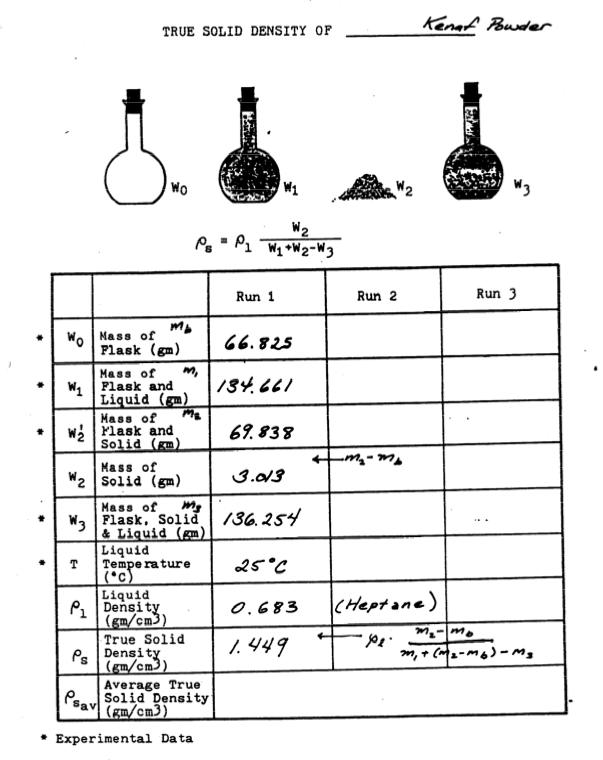 TRUE SOLID DENSITY OF Kenaf Powder
W0
W1
W2
W3
ρs = ρl W2
W1+W2-W3
Run 1 Run 2 Run 3
* W0 Mass of mb
Flask (gm) 66.825
* W1 Mass of m1
Flask and
Liquid (gm) 134.661
* W2' Mass of m2
Flask and
Solid (gm) 69.838
W2 Mass of
Solid (gm) 3.013 ← m2 - mb
* W3 Mass of m3
Flask, Solid
& Liquid (gm) 136.254
* T Liquid
Temperature
(°C) 25°C
ρl Liquid
Density
(gm/cm3) 0.683 (Heptane)
ρs True Solid
Density
(gm/cm3) 1.449 ← ρl · m2 - mb
m1 + (m2 - mb) - m3
ρsav Average True
Solid Density
(gm/cm3)
* Experimental Data